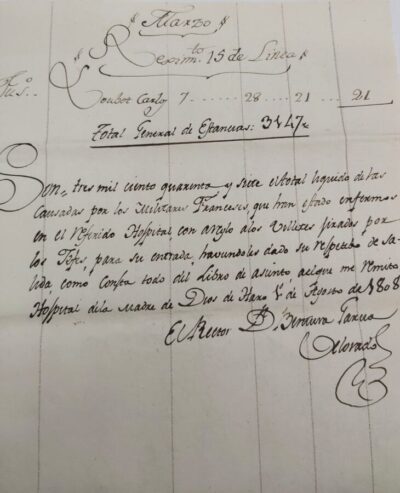 Marzo
Regim.to 15 de Linea
Loubet Carly 7 28 21 21
Total General de Estancias: 3147
Son tres mil ciento quarenta y siete el total liquido de las
Causadas por los Militares Franceses, que han estado enfermos
en el referido Hospital con arreglo a los Villetes firados por
los Jefes, para su entrada, haviendoles dado su respectiba sa-
lida como Consta todo del Libro de asiento, al que me remito
Hospital de la Madre de Dios de Haro y de Agosto de 1808
El Rector D.n Garcia